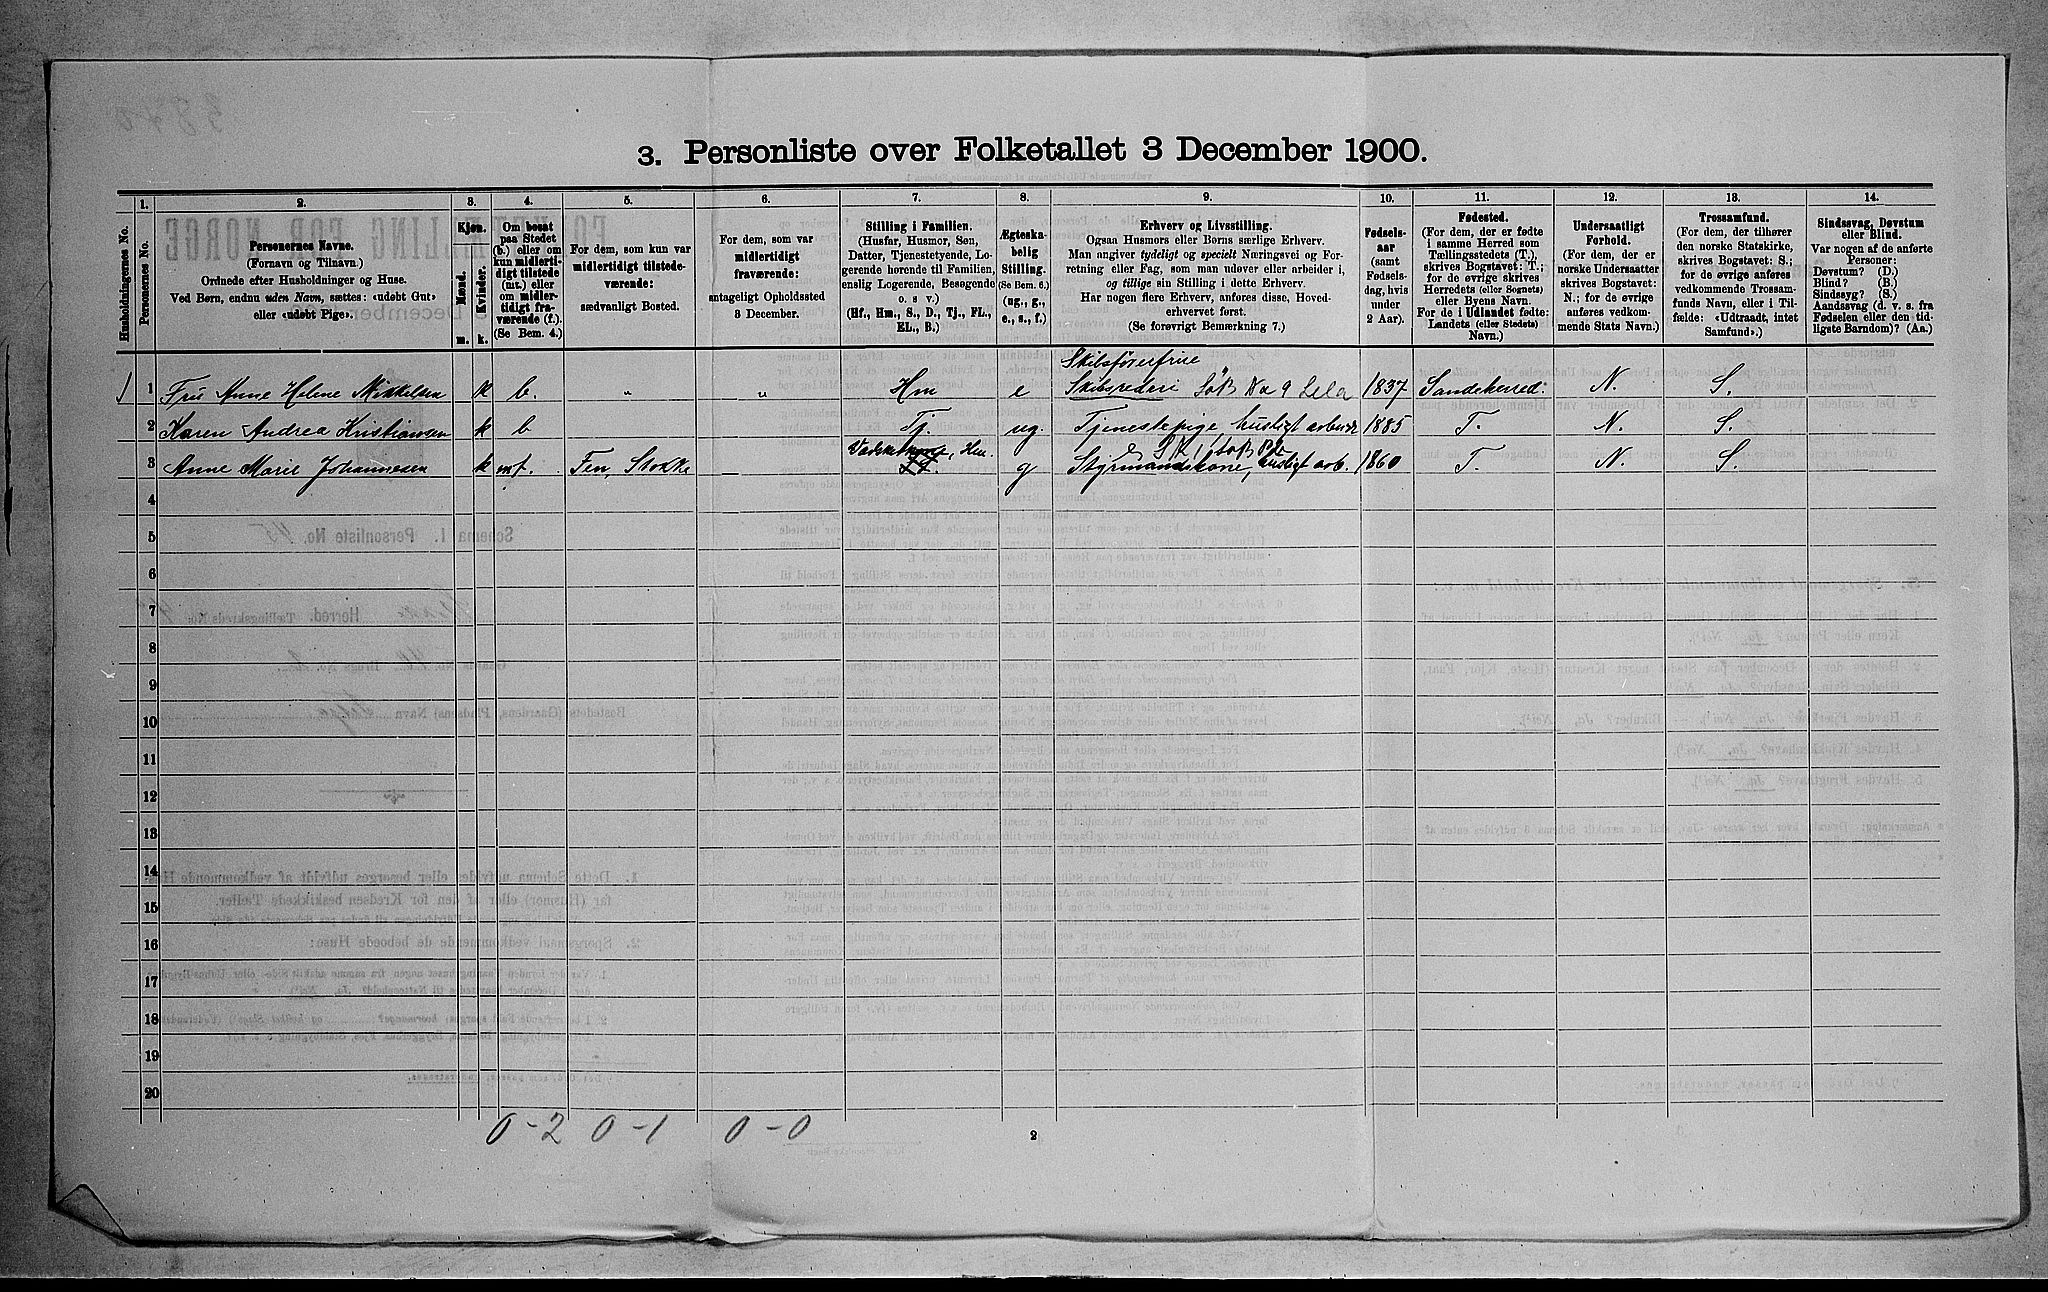 3. Personliste over Folketallet 3 December 1900.
1. 2. 3. 4. 5. 6. 7. 8. 9. 10. 11. 12. 13. 14.
Husholdningernes No.
Personernes No.
Personernes Navne.
(Fornavn og Tilnavn.)
Ordnede efter Husholdninger og Huse.
Ved Børn, endnu uden Navn, sættes: «udøbt Gut»
eller «udøbt Pige».
Kjøn.
Mænd.
Kvinder.
m. k.
Om bosat
paa Stedet
(b.) eller om
kun midlerti-
digt tilstede
(mt.) eller
om midler-
tidigt fra-
værende (f.).
(Se Bem. 4.)
For dem, som kun var
midlertidigt tilstede-
værende:
sædvanligt Bosted.
For dem, som var
midlertidigt
fraværende:
antageligt Opholdssted
3 December.
Stilling i Familien.
(Husfar, Husmor, Søn,
Datter, Tjenestetyende, Lo-
gerende hørende til Familien,
enslig Logerende, Besøgende
o. s v.)
(Hf., Hm., S., D., Tj., FL.,
EL., B.)
Ægteska-
belig
Stilling.
(Se Bem. 6.)
(ug., g.,
e., s., f.)
Erhverv og Livsstilling.
Ogsaa Husmors eller Børns særlige Erhverv.
Man angiver tydeligt og specielt Næringsvei og For-
retning eller Fag, som man udøver eller arbeider i,
og tillige sin Stilling i dette Erhverv.
Har nogen flere Erhverv, anføres disse, Hoved-
erhvervet først.
(Se forøvrigt Bemærkning 7.)
Fødsels-
aar
(samt
Fødsels-
dag, hvis
under
2 Aar).
Fødested.
(For dem, der er fødte
i samme Herred som
Tællingsstedets (T.),
skrives Bogstavet: T.;
for de øvrige skrives
Herredets (eller Sognets)
eller Byens Navn.
For de i Udlandet fødte:
Landets (eller Stedets)
Navn.)
Undersaatligt
Forhold.
(For dem, der er
norske Undersaatter
skrives Bogstavet:
N.; for de øvrige
anføres vedkom-
mende Stats Navn.)
Trossamfund.
(For dem, der tilhører
den norske Statskirke,
skrives Bogstavet: S.;
for de øvrige anføres
vedkommende Trossam-
funds Navn, eller i Til-
fælde: «Udtraadt, intet
Samfund».)
Sindssvag, Døvstum
eller Blind.
Var nogen af de anførte
Personer:
Døvstum? (D.)
Blind? (B.)
Sindssyg? (S.)
Aandssvag (d. v. s. fra
Fødselen eller den tid-
ligste Barndom)? (Aa.)
Skibsførerfrue
1 1 Fru Anne Helene Mikkelsen k b. " " Hm e Skibsrederi 1837 Sandeherred. N. S.
2 Karen Andrea Kristiansen k b Tj. ug. Tjenestepige husligt arbeide 1885 T. N. S.
3 Anne Marie Johannesen k mt. Fen, Stokke g Styrmandskone, husligt arb. 1860 T. N. S.
4
5
6
7
8
9
10
11
12
13
14
15
16
17
18
19
20
0-2 0-1 0-0
2